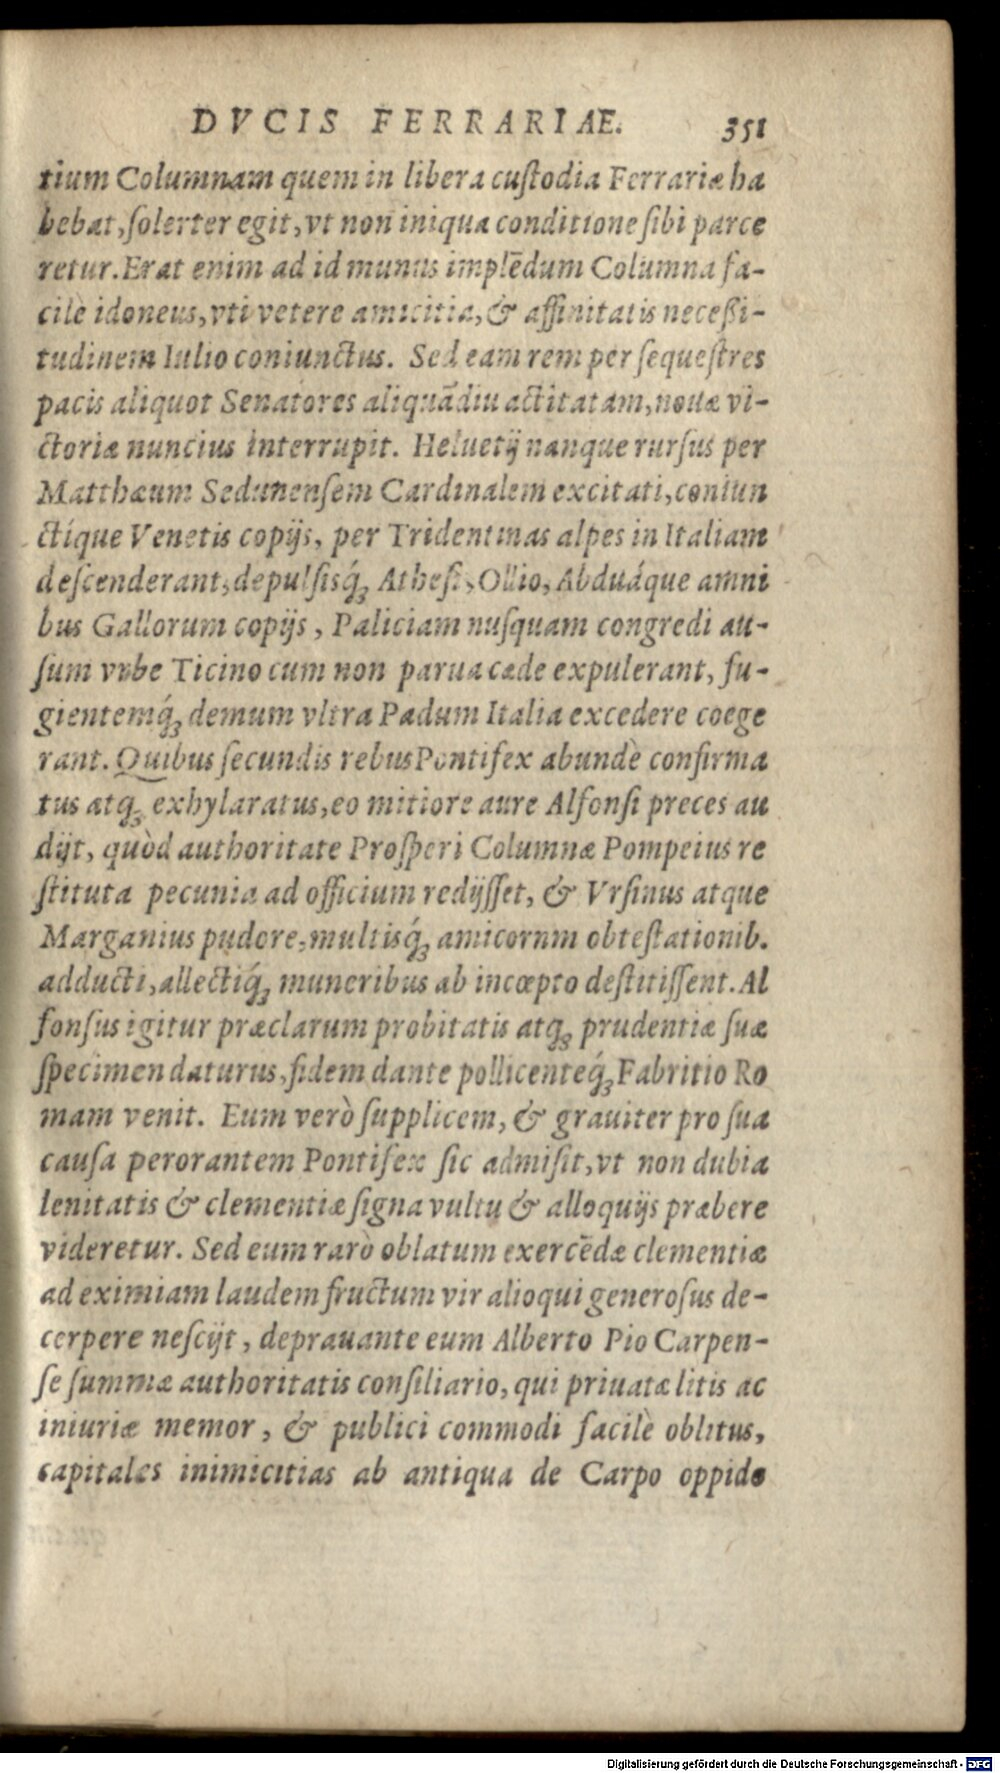 DVCIS FERRARIAE. 351
tium Columnam quem in libera cuſtodia Ferrariæ ha
bebat, ſolerter egit, vt non iniqua conditione ſibi parce
retur. Erat enim ad id munus implēdum Columna fa-
cilè idoneus, vti vetere amicitia, & affinitatis neceßi-
tudinem Iulio coniunctus. Sed eam rem per ſequeſtres
pacis aliquot Senatores aliquādiu actitatam, nouæ vi-
ctoriæ nuncius interrupit. Heluetij nanque rurſus per
Matthæum Sedunenſem Cardinalem excitati, coniun
ctíque Venetis copijs, per Tridentinas alpes in Italiam
deſcenderant, depulſisq́ꝫ Atheſi, Ollio, Abduáque amni
bus Gallorum copijs, Paliciam nuſquam congredi au-
ſum vrbe Ticino cum non parua cæde expulerant, fu-
gientemq́ꝫ demum vltra Padum Italia excedere coege
rant. Quibus ſecundis rebus Pontifex abundè confirma
tus atqꝫ exhylaratus, eo mitiore aure Alfonſi preces au
dijt, quòd authoritate Proſperi Columnæ Pompeius re
ſtituta pecunia ad officium redijſſet, & Vrſinus atque
Marganius pudore, multisq́ꝫ amicornm obteſtationib.
adducti, allectiq́ꝫ muneribus ab incœpto deſtitiſſent. Al
fonſus igitur præclarum probitatis atqꝫ prudentiæ ſuæ
ſpecimen daturus, fidem dante pollicenteq́ꝫ Fabritio Ro
mam venit. Eum verò ſupplicem, & grauiter pro ſua
cauſa perorantem Pontifex ſic admiſit, vt non dubia
lenitatis & clementiæ ſigna vultu & alloquijs præbere
videretur. Sed eum rarò oblatum exercēdæ clementiæ
ad eximiam laudem fructum vir alioqui generoſus de-
cerpere neſcijt, deprauante eum Alberto Pio Carpen-
ſe ſummæ authoritatis conſiliario, qui priuatæ litis ac
iniuriæ memor, & publici commodi facilè oblitus,
capitales inimicitias ab antiqua de Carpo oppido
Digitalisierung gefördert durch die Deutsche Forschungsgemeinschaft - DFG